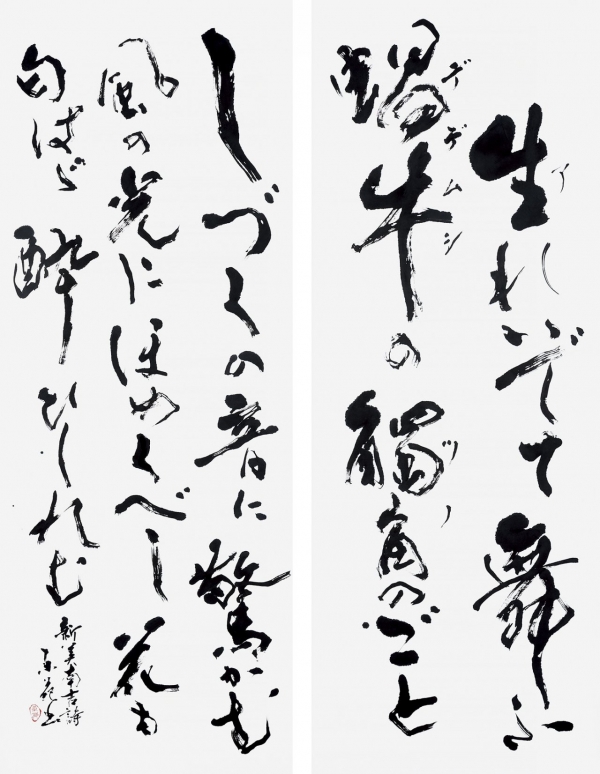 生れいでて舞ふ
蝸牛の觸角のごと
デデムシ
ツノ
しづくの音に驚かむ
風の光にほめくべし花も
匂はゞ酔ひしれむ
新美南吉詩